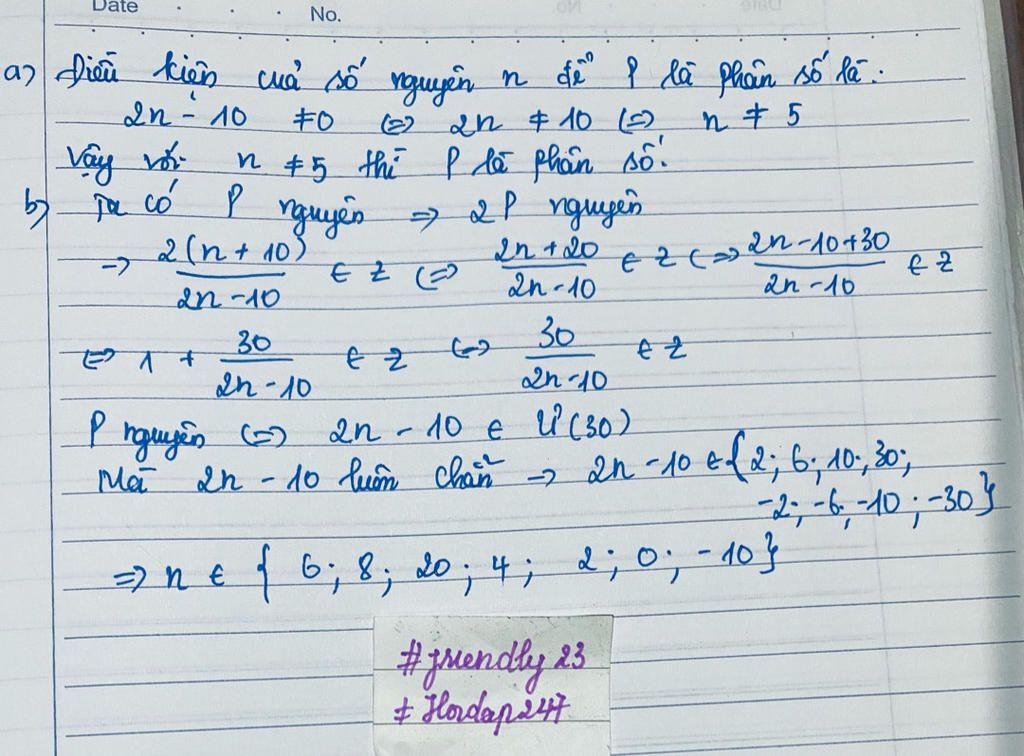 Date No.
a) Điều kiện của số nguyên n để P là phân số là:
2n - 10 ≠ 0 ⇔ 2n ≠ 10 ⇔ n ≠ 5
Vậy với n ≠ 5 thì P là phân số.
b) Ta có P nguyên ⇒ 2P nguyên
→ 2(n + 10)/(2n - 10) ∈ Z ⇔ (2n + 20)/(2n - 10) ∈ Z ⇔ (2n - 10 + 30)/(2n - 10) ∈ Z
⇔ 1 + 30/(2n - 10) ∈ Z ⇔ 30/(2n - 10) ∈ Z
P nguyên ⇔ 2n - 10 ∈ Ư(30)
Mà 2n - 10 luôn chẵn → 2n - 10 ∈ {2; 6; 10; 30;
-2; -6; -10; -30}
⇒ n ∈ { 6; 8; 20; 4; 2; 0; -10}
#friendly23
# Hoidap247